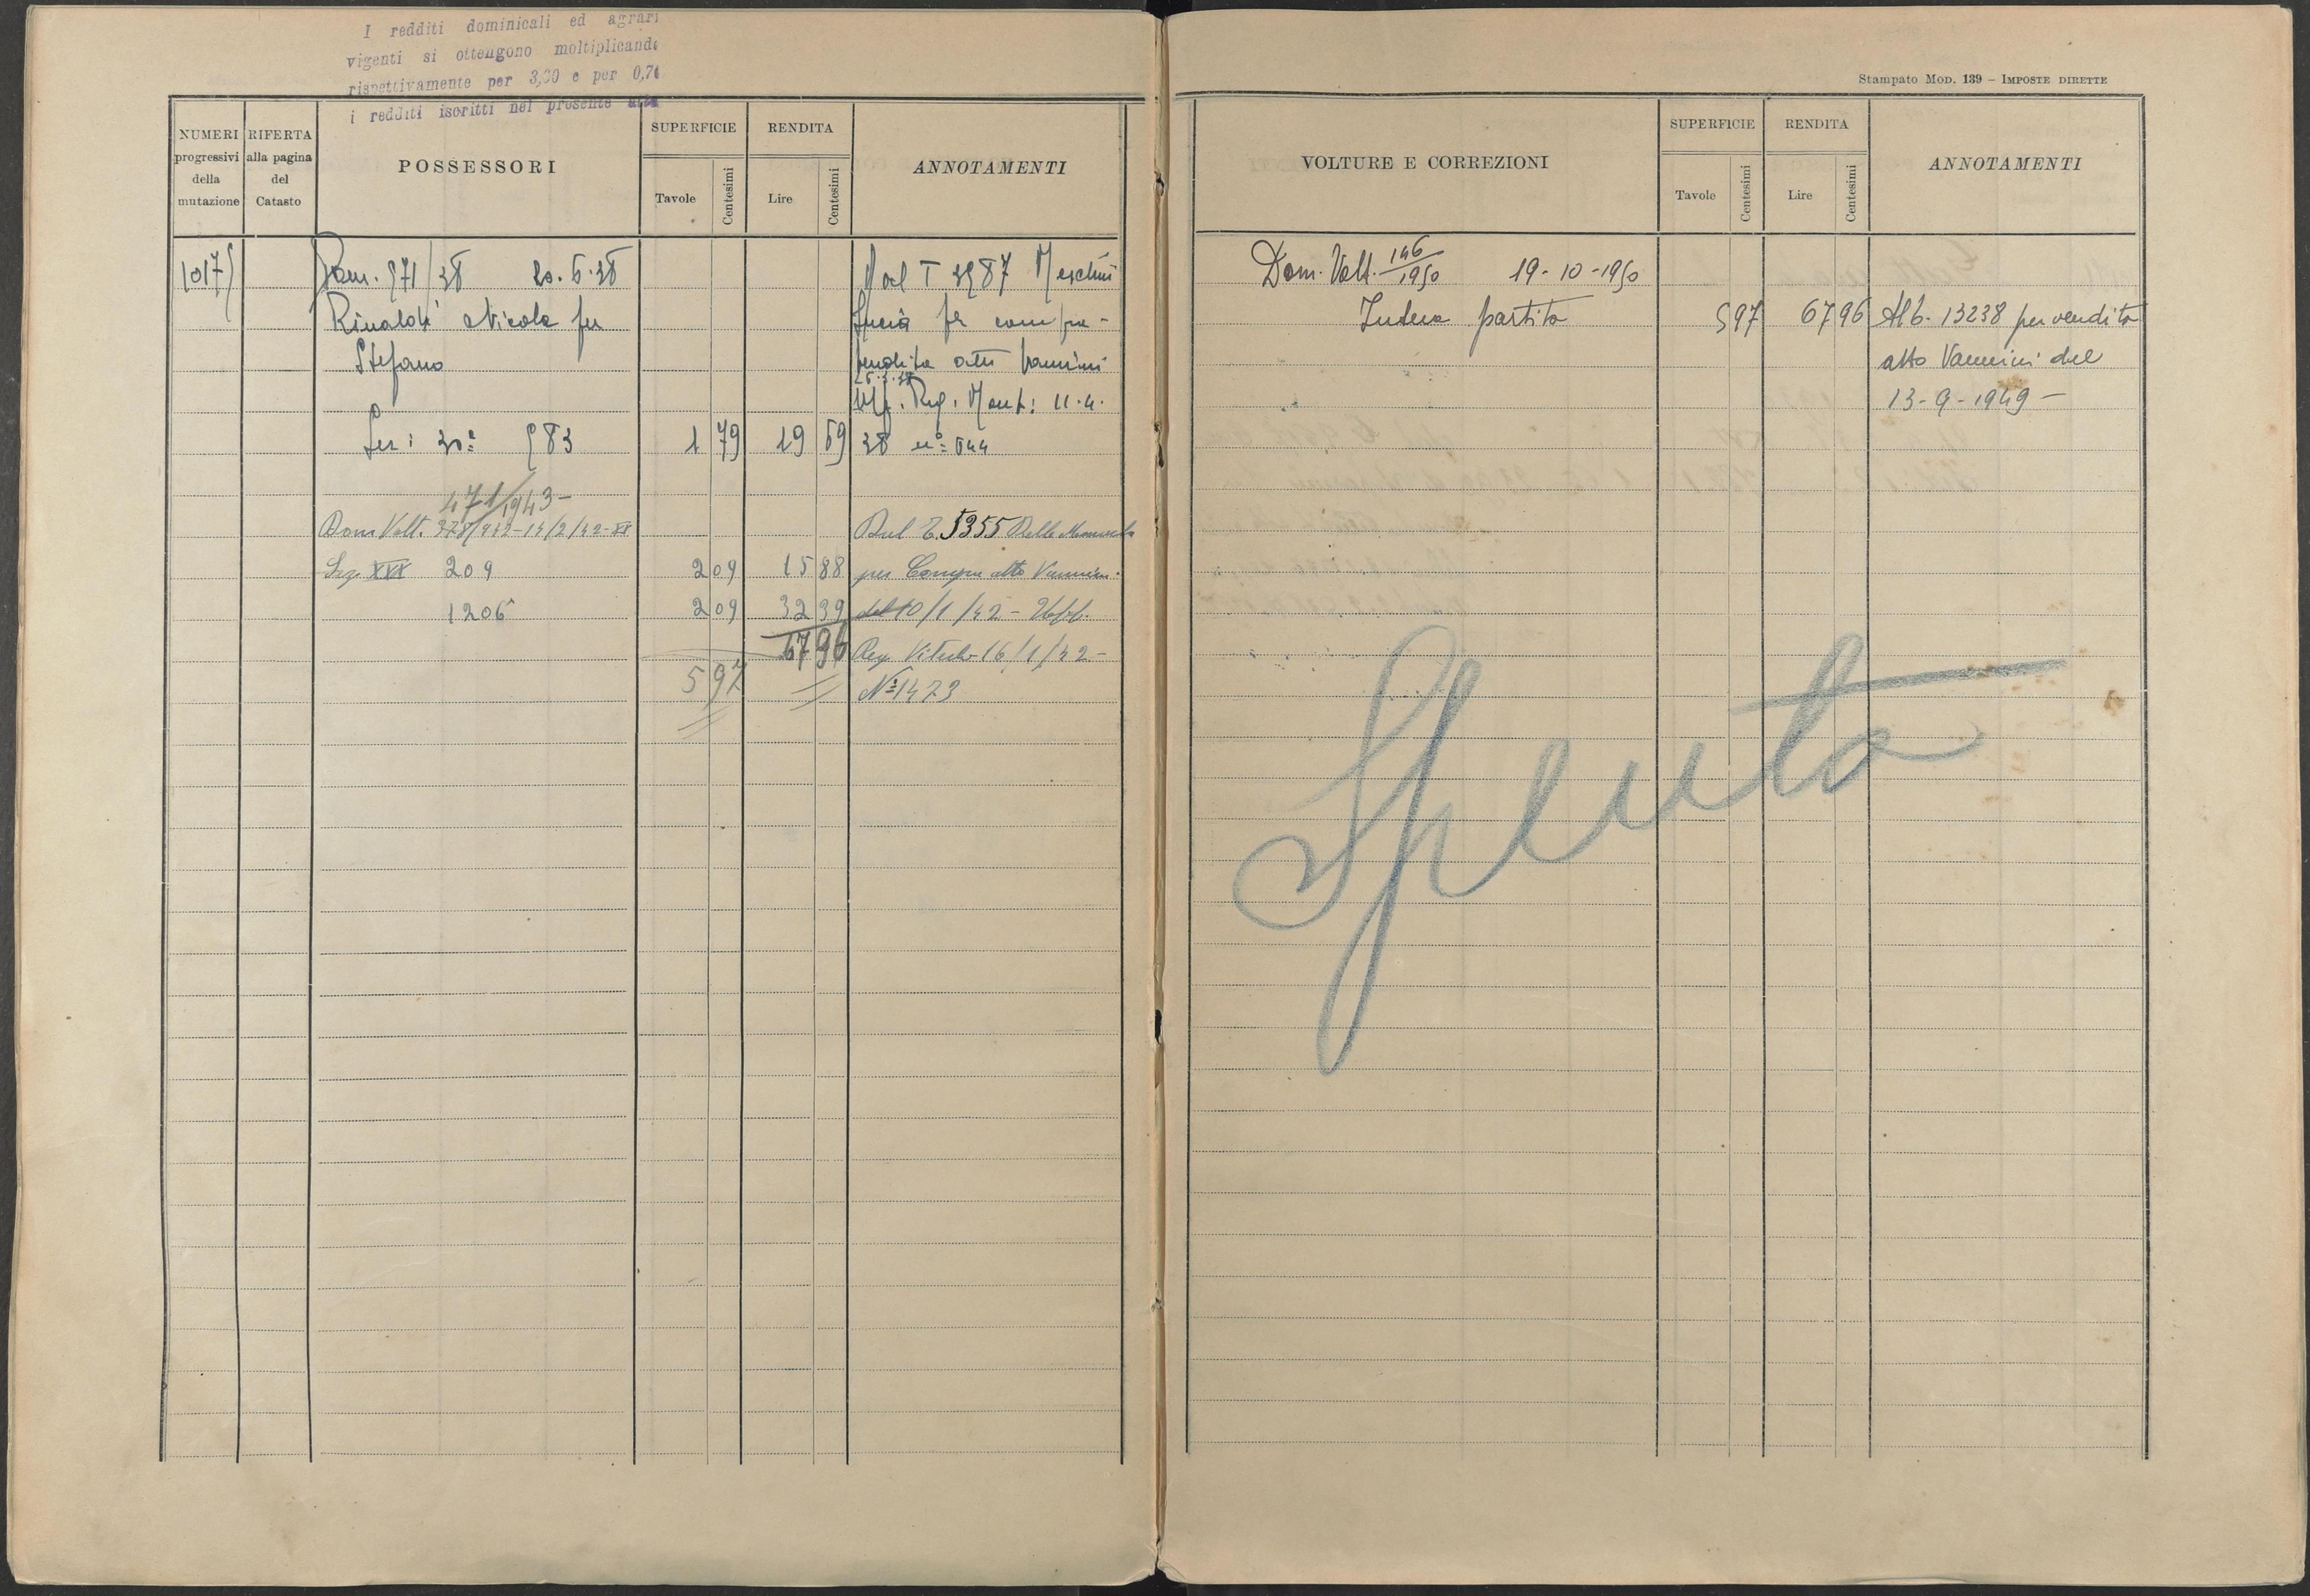 I redditi dominicali ed agrari
vigenti si ottengono moltiplicando
rispettivamente per 3,00 e per 0,70
i redditi iscritti nel presente atto
Stampato Mod. 139 – Imposte dirette
NUMERI progressivi della mutazione
RIFERTA alla pagina del Catasto
POSSESSORI
SUPERFICIE
Tavole
Centesimi
RENDITA
Lire
Centesimi
ANNOTAMENTI
10175
971/38 20.6.38
Rinaldi Nicola fu
Stefano
Sez: 30ª 983 1 79 19 69
Dal T 3987 Meschini
per compra-
vendita atto Vannini
26.3.38
Uff. Reg. Monf: 11.4.
38 nº 644
471/1943-
Dom Volt. 378/942-14/2/42-XX
Dal T. 5355 Delle Monache
Sez XXX 209 2 09 15 88 per Compra atto Vannini
1206 2 09 32 39 del 10/1/42 - Uff.
67 96 Reg. Viterbo 16/1/42-
5 97 Nº 1473
VOLTURE E CORREZIONI
SUPERFICIE
Tavole
Centesimi
RENDITA
Lire
Centesimi
ANNOTAMENTI
Dom. Volt. 146/1950 19-10-1950
Intera partita 5 97 67 96 Al 6. 13238 per vendita
atto Vannini del
13-9-1949-
Spenta